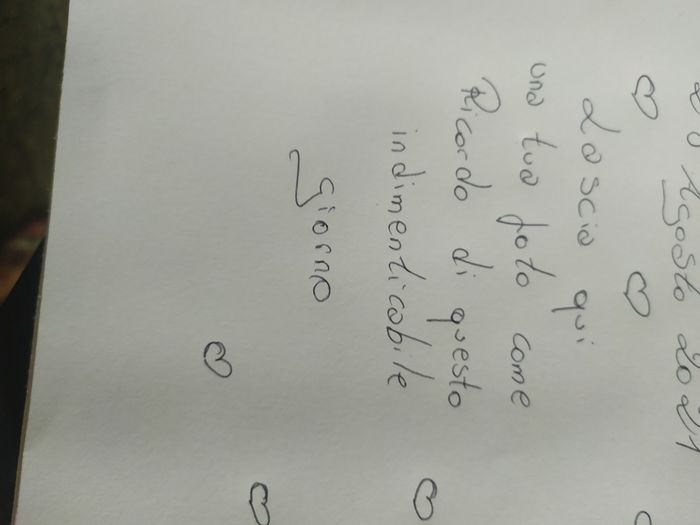 Agosto 2021
Lascia qui
una tua foto come
Ricordo di questo
indimenticabile
giorno